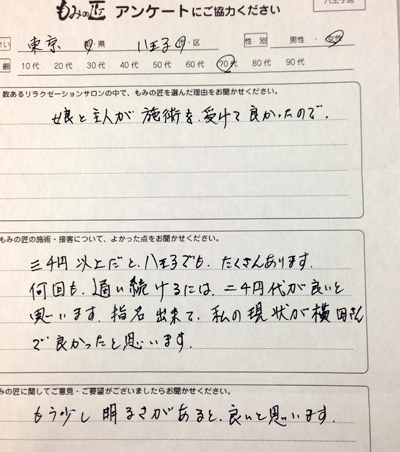 もみの匠 アンケートにご協力ください
八王子店
さい 東京 都・県 八王子市・区 性別 男性・女性
齢 10代 20代 30代 40代 50代 60代 70代 80代 90代
数あるリラクゼーションサロンの中で、もみの匠を選んだ理由をお聞かせください。
娘と主人が施術を、受けて良かったので。
もみの匠の施術・接客について、よかった点をお聞かせください。
三千円以上だと、八王子でも、たくさんあります。
何回も、通い続けるには、二千円代が良いと
思います。指名出来て、私の現状が横田さん
で良かったと思います。
みの匠に関してご意見・ご要望がございましたらお聞かせください。
もう少し明るさがあると、良いと思います。